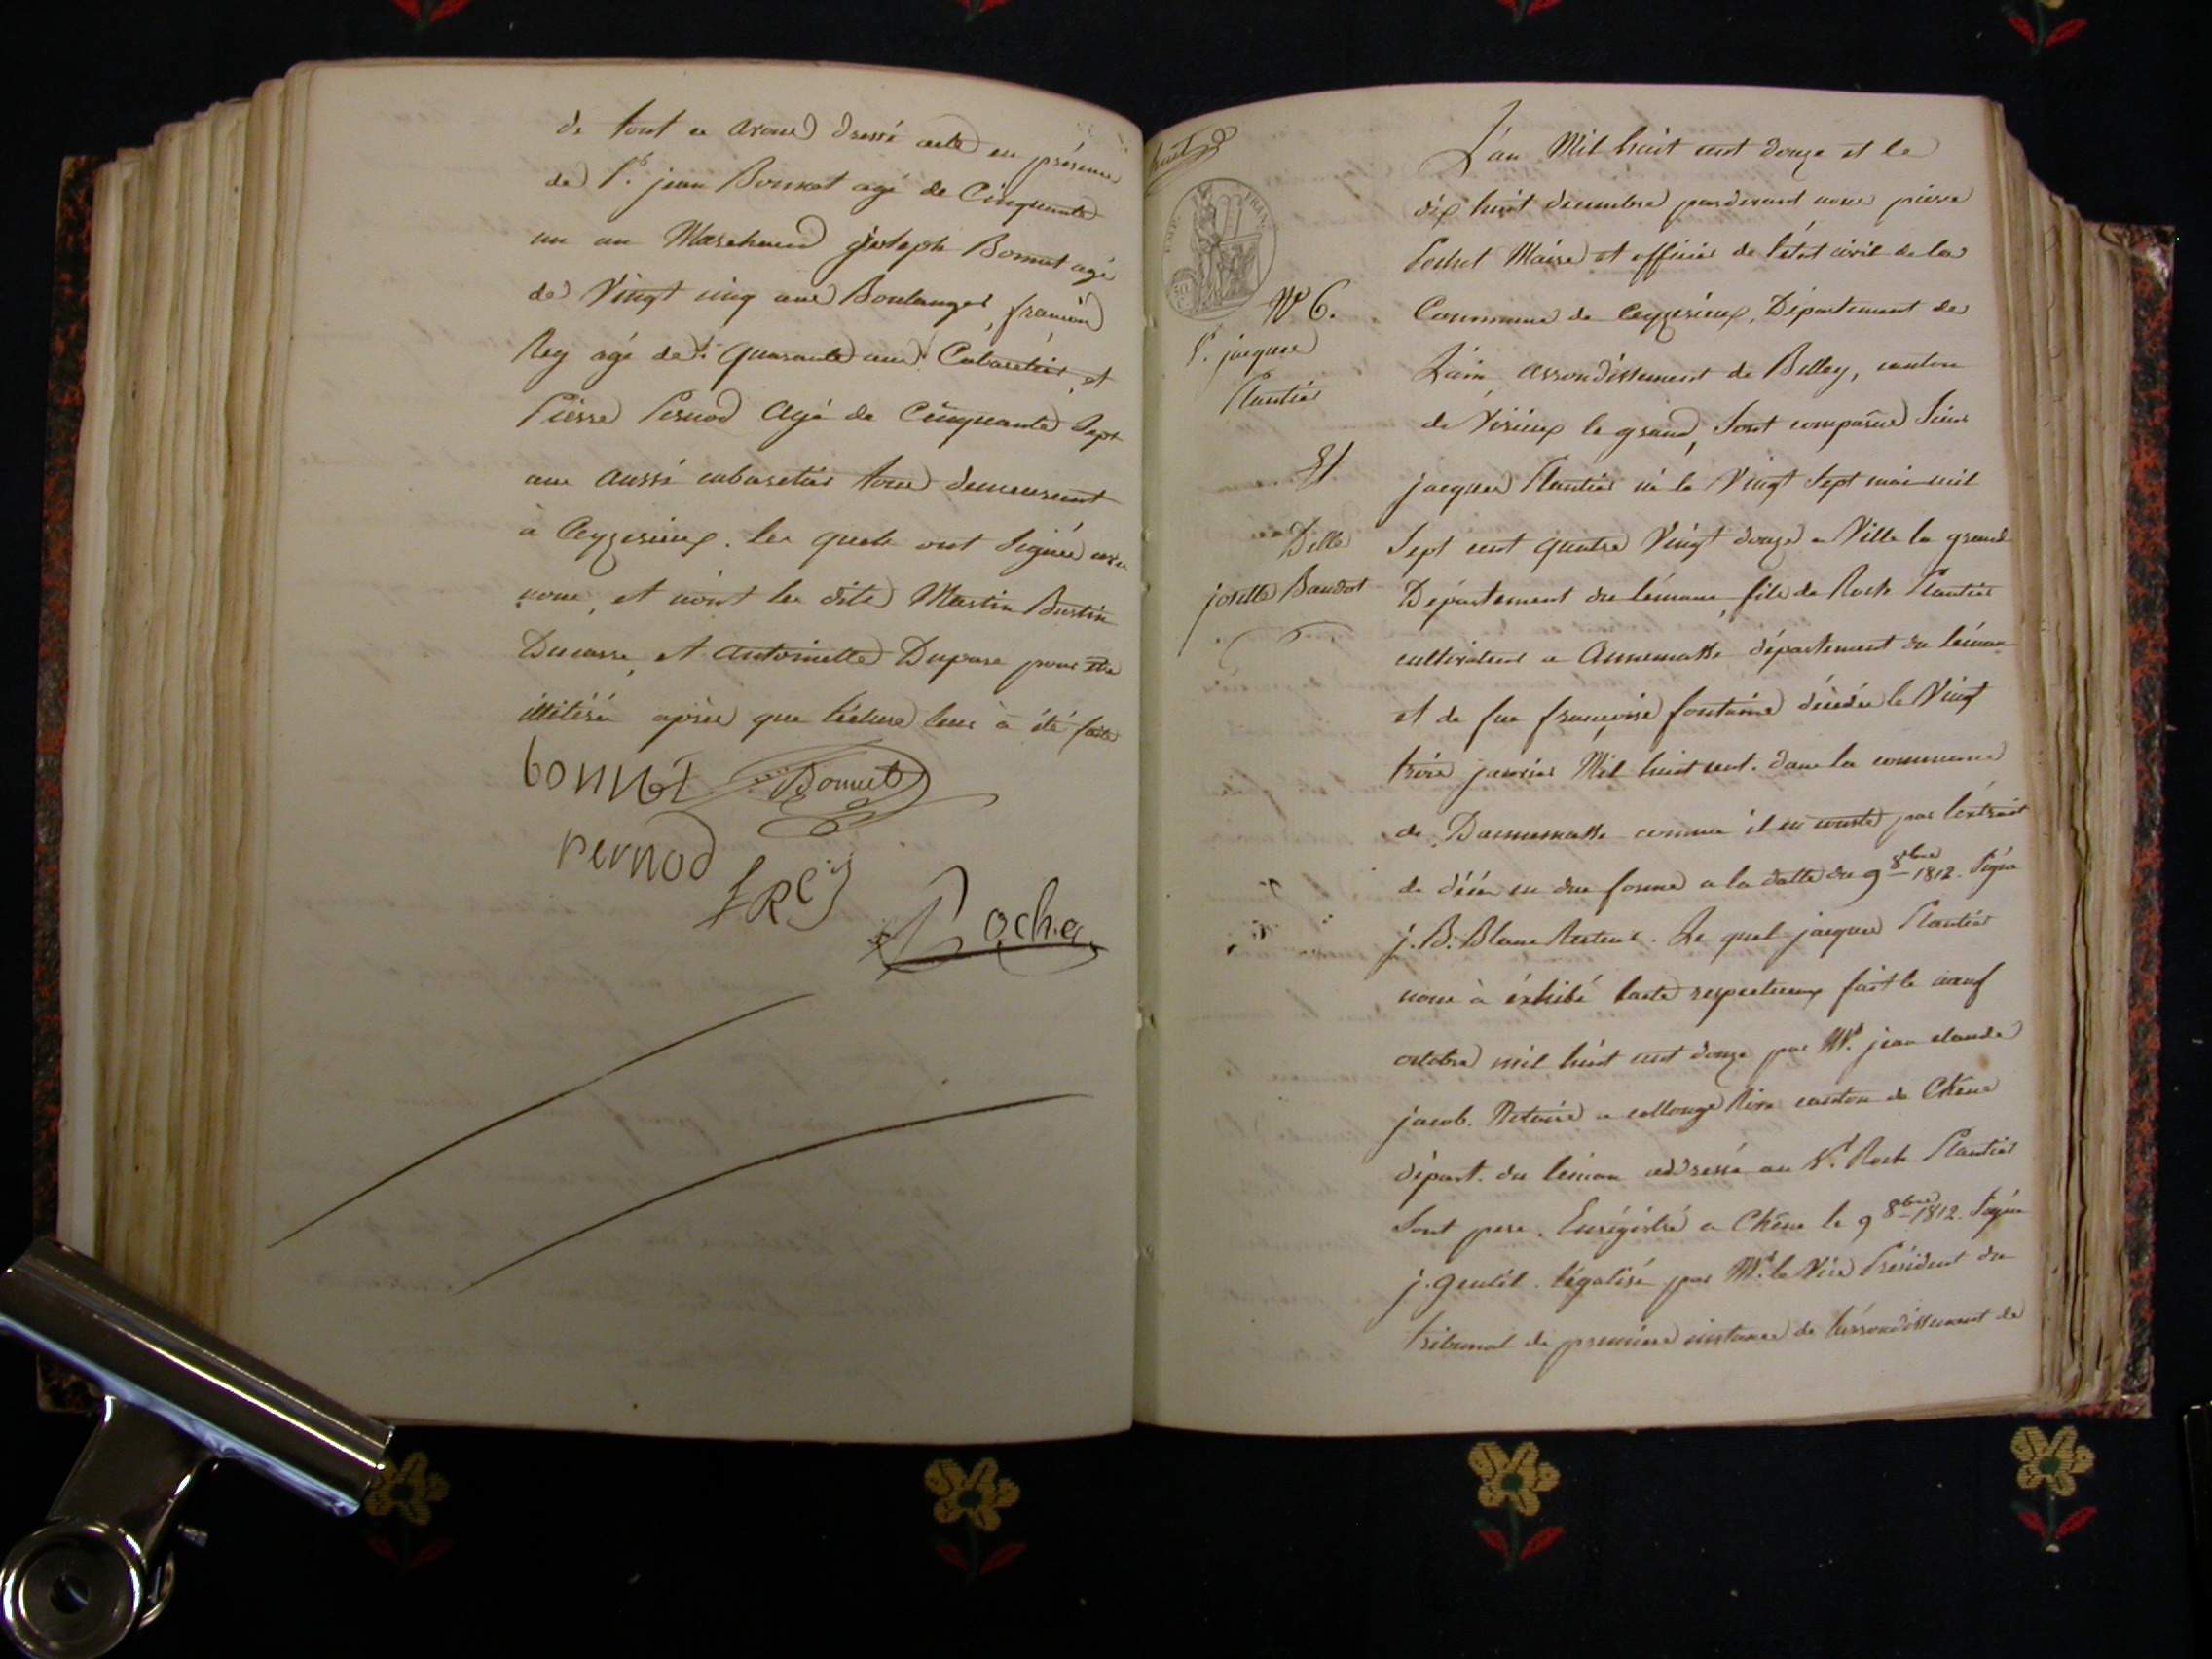 de tout ce avons dressé acte en présence
de Sr. jean Bonnet agé de Cinquante
un ans Marchand joseph Bonnet agé
de Vingt cinq ans Boulanger, françois
Rey agé de quarante ans Cabaretier, et
Pierre Pernod Agé de Cinquante Sept
ans aussi cabaretier tous demeurant
à Ceyzerieux. les quels ont Signés avec
nous, et non les dits Martin Burtin
Ducasse, et antoinette Dupare pour être
illitéré après que lécture leur à été faite
bonnet Bonnet
pernod
f Rey
Pochet
huit
EMP. FRAN.
L'an Mil huit cent douze et le
dix huit decembre pardevant nous pierre
Pochet Maire et officier de l'état civil de la
Commune de Ceyzerieux, Département de
L'ain arrondissement de Belley, canton
de Virieux le grand, Sont comparus Sieur
jacques Plantier né le Vingt Sept mai mil
Sept cent quatre Vingt douze a Ville la grand
Département du léman, fils de Roch Plantier
cultivateur a Annemasse département du léman
et de fue françoise fontaine décédée le Vingt
trois janvier Mil huit cent. dans la commune
de Dannemasse comme il en conste par l'extrait
de décès en due forme a la datte du 9 8bre 1812. Signé
j. B. Blanc Recteur. Le quel jacques Plantier
nous à éxhibé lacte respectueux fait le neuf
octobre mil huit cent douze par Mr. jean claude
jacob. Notaire a collonge canton de Chêne
départ. du léman addressé au Sr. Roch Plantier
Sont pere. Enrégistré a Chêne le 9 8bre 1812. Signé
j. gentil. légalisé par Mr. le Vice Président du
tribunal de premiere instance de l'arrondissement de
No 6.
Sr. jacques
Plantier
Et
Delle
josette Baudot